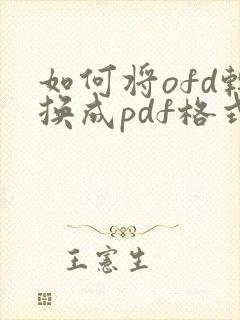 如何将ofd转
换成pdf格式
王憲生